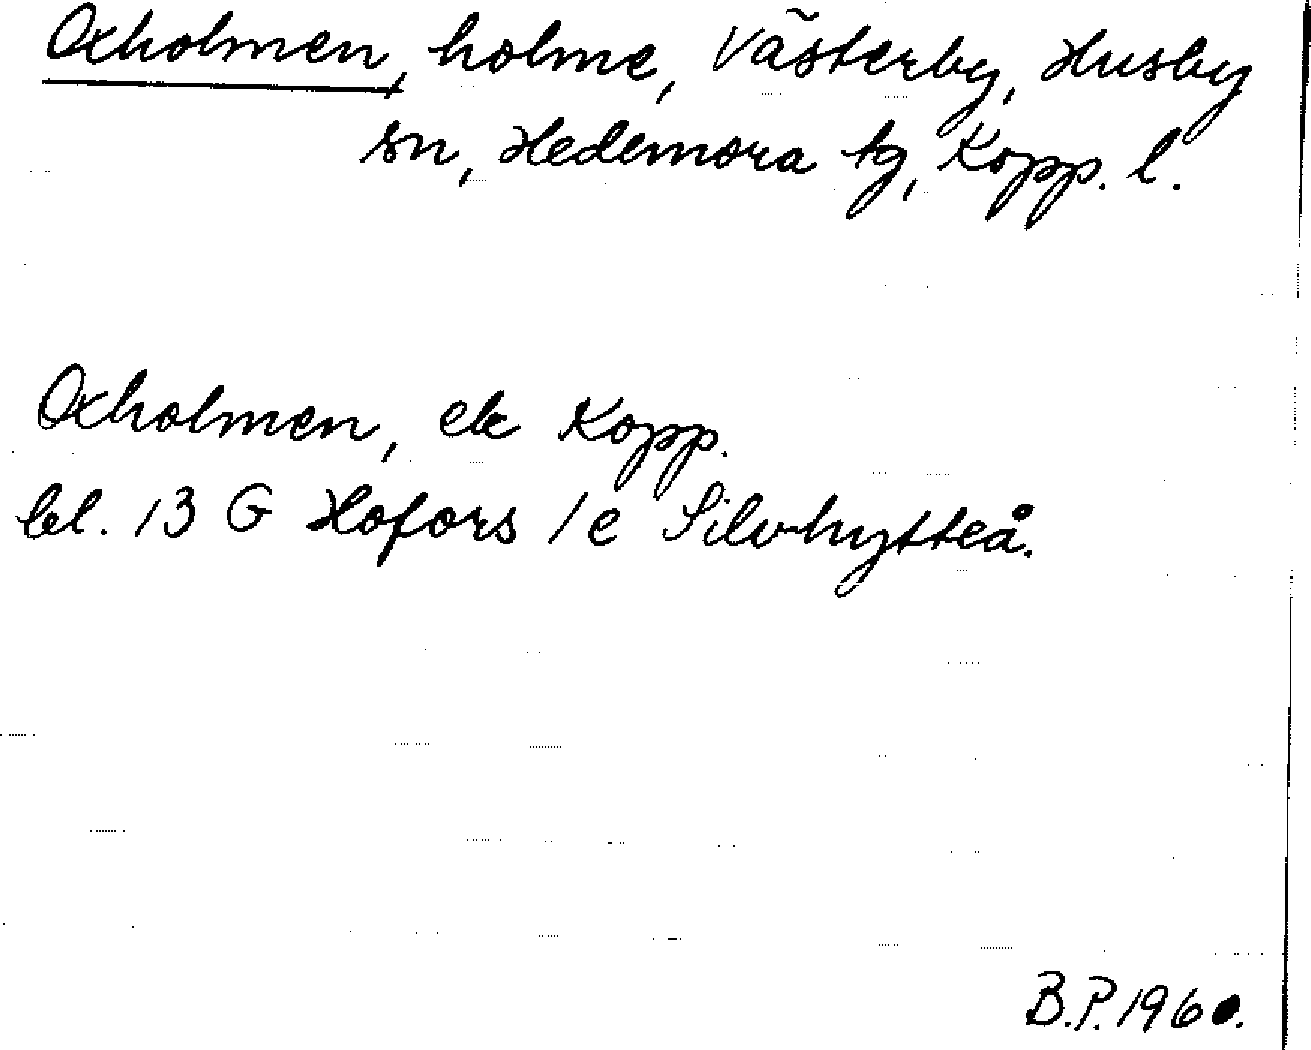 Oxholmen, holme, Västerby, Husby
sn, Hedemora tg, Kopp. l.
Oxholmen, ek Kopp.
bl. 13 G Hofors 1e Silvhytteå.
B.P. 1960.